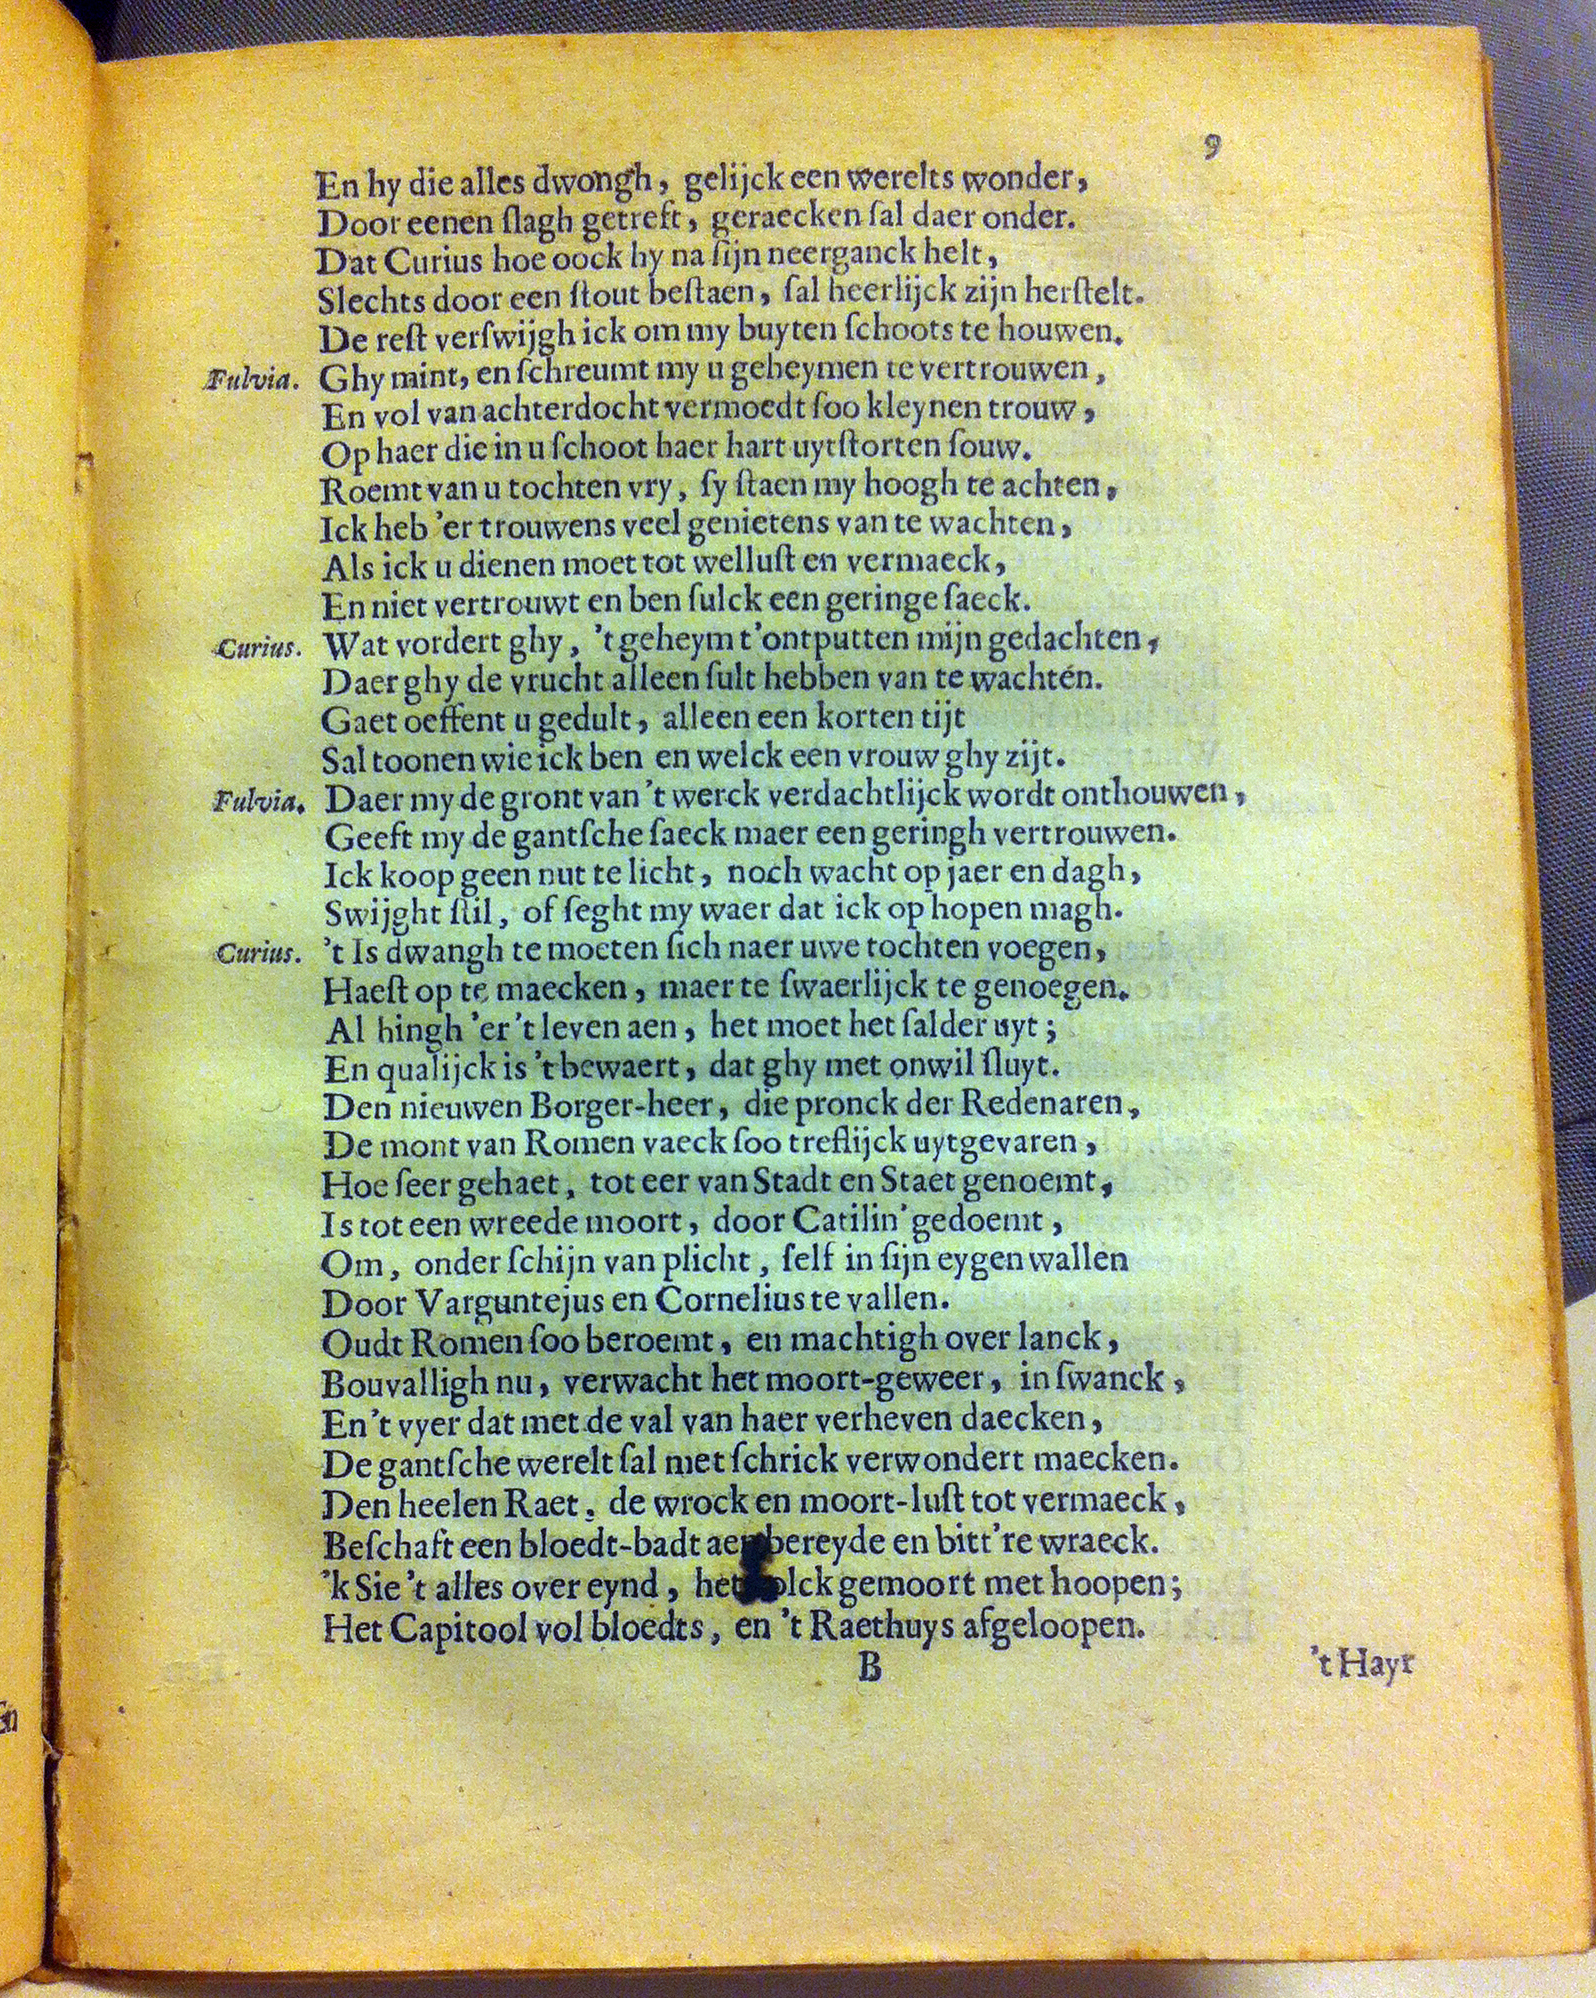 9
En hy die alles dwongh, gelijck een werelts wonder,
Door eenen ſlagh getreft, geraecken ſal daer onder.
Dat Curius hoe oock hy na ſijn neerganck helt,
Slechts door een ſtout beſtaen, ſal heerlijck zijn herſtelt.
De reſt verſwijgh ick om my buyten ſchoots te houwen.
Fulvia. Ghy mint, en ſchreumt my u geheymen te vertrouwen,
En vol van achterdocht vermoedt ſoo kleynen trouw,
Op haer die in u ſchoot haer hart uytſtorten ſouw.
Roemt van u tochten vry, ſy ſtaen my hoogh te achten,
Ick heb 'er trouwens veel genietens van te wachten,
Als ick u dienen moet tot welluſt en vermaeck,
En niet vertrouwt en ben ſulck een geringe ſaeck.
Curius. Wat vordert ghy, 't geheym t'ontputten mijn gedachten,
Daer ghy de vrucht alleen ſult hebben van te wachtén.
Gaet oeffent u gedult, alleen een korten tijt
Sal toonen wie ick ben en welck een vrouw ghy zijt.
Fulvia. Daer my de gront van 't werck verdachtlijck wordt onthouwen,
Geeft my de gantſche ſaeck maer een geringh vertrouwen.
Ick koop geen nut te licht, noch wacht op jaer en dagh,
Swijght ſtil, of ſeght my waer dat ick op hopen magh.
Curius. 't Is dwangh te moeten ſich naer uwe tochten voegen,
Haeſt op te maecken, maer te ſwaerlijck te genoegen.
Al hingh 'er 't leven aen, het moet het ſalder uyt;
En qualijck is 't bewaert, dat ghy met onwil ſluyt.
Den nieuwen Borger-heer, die pronck der Redenaren,
De mont van Romen vaeck ſoo treflijck uytgevaren,
Hoe ſeer gehaet, tot eer van Stadt en Staet genoemt,
Is tot een wreede moort, door Catilin' gedoemt,
Om, onder ſchijn van plicht, ſelf in ſijn eygen wallen
Door Varguntejus en Cornelius te vallen.
Oudt Romen ſoo beroemt, en machtigh over lanck,
Bouvalligh nu, verwacht het moort-geweer, in ſwanck,
En 't vyer dat met de val van haer verheven daecken,
De gantſche werelt ſal met ſchrick verwondert maecken.
Den heelen Raet, de wrock en moort-luſt tot vermaeck,
Beſchaft een bloedt-badt aen bereyde en bitt're wraeck.
'k Sie 't alles over eynd, het volck gemoort met hoopen;
Het Capitool vol bloedts, en 't Raethuys afgeloopen.
B
't Hayr